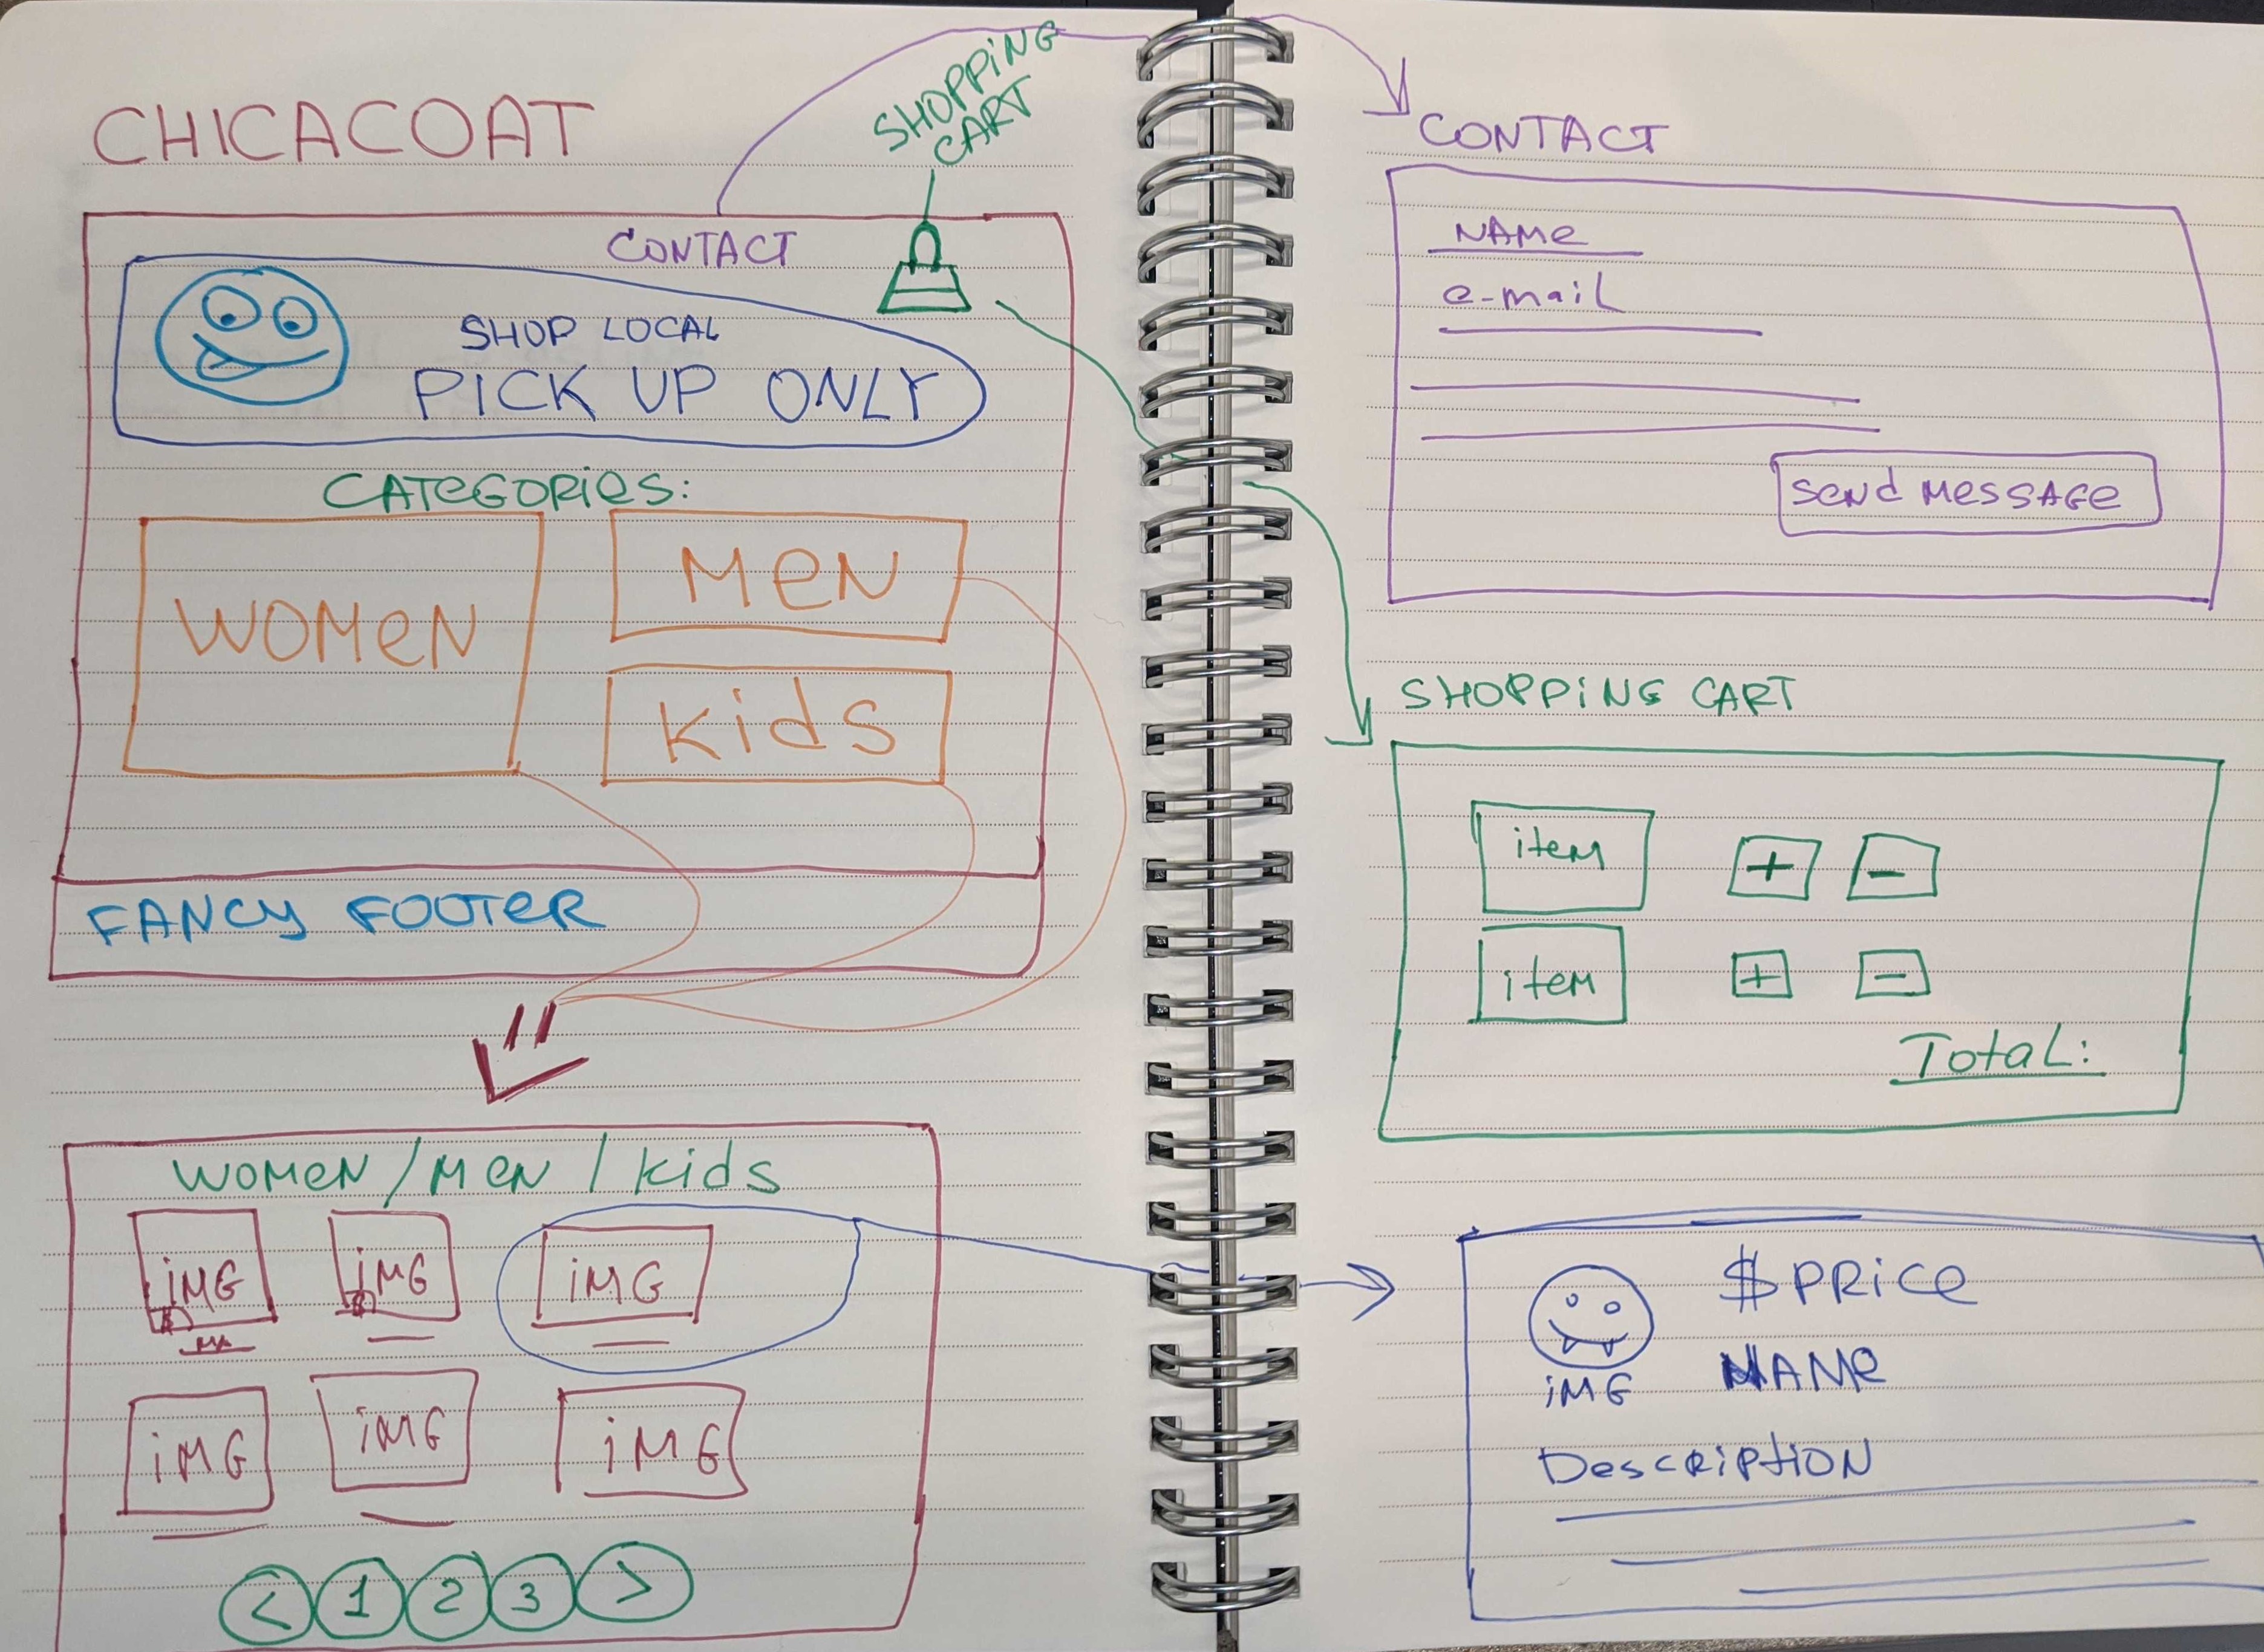 CHICACOAT
SHOPPING
CART
CONTACT
SHOP LOCAL
PICK UP ONLY
CATEGORIES:
WOMEN
MEN
Kids
FANCY FOOTER
WOMEN/MEN/Kids
iMG
$
iMG
$
iMG
iMG
iMG
iMG
< 1 2 3 >
CONTACT
NAMe
e-mail
Send Message
SHOPPiNG CART
item
+ -
item
+ -
Total:
$PRice
iMG
NAMe
Description